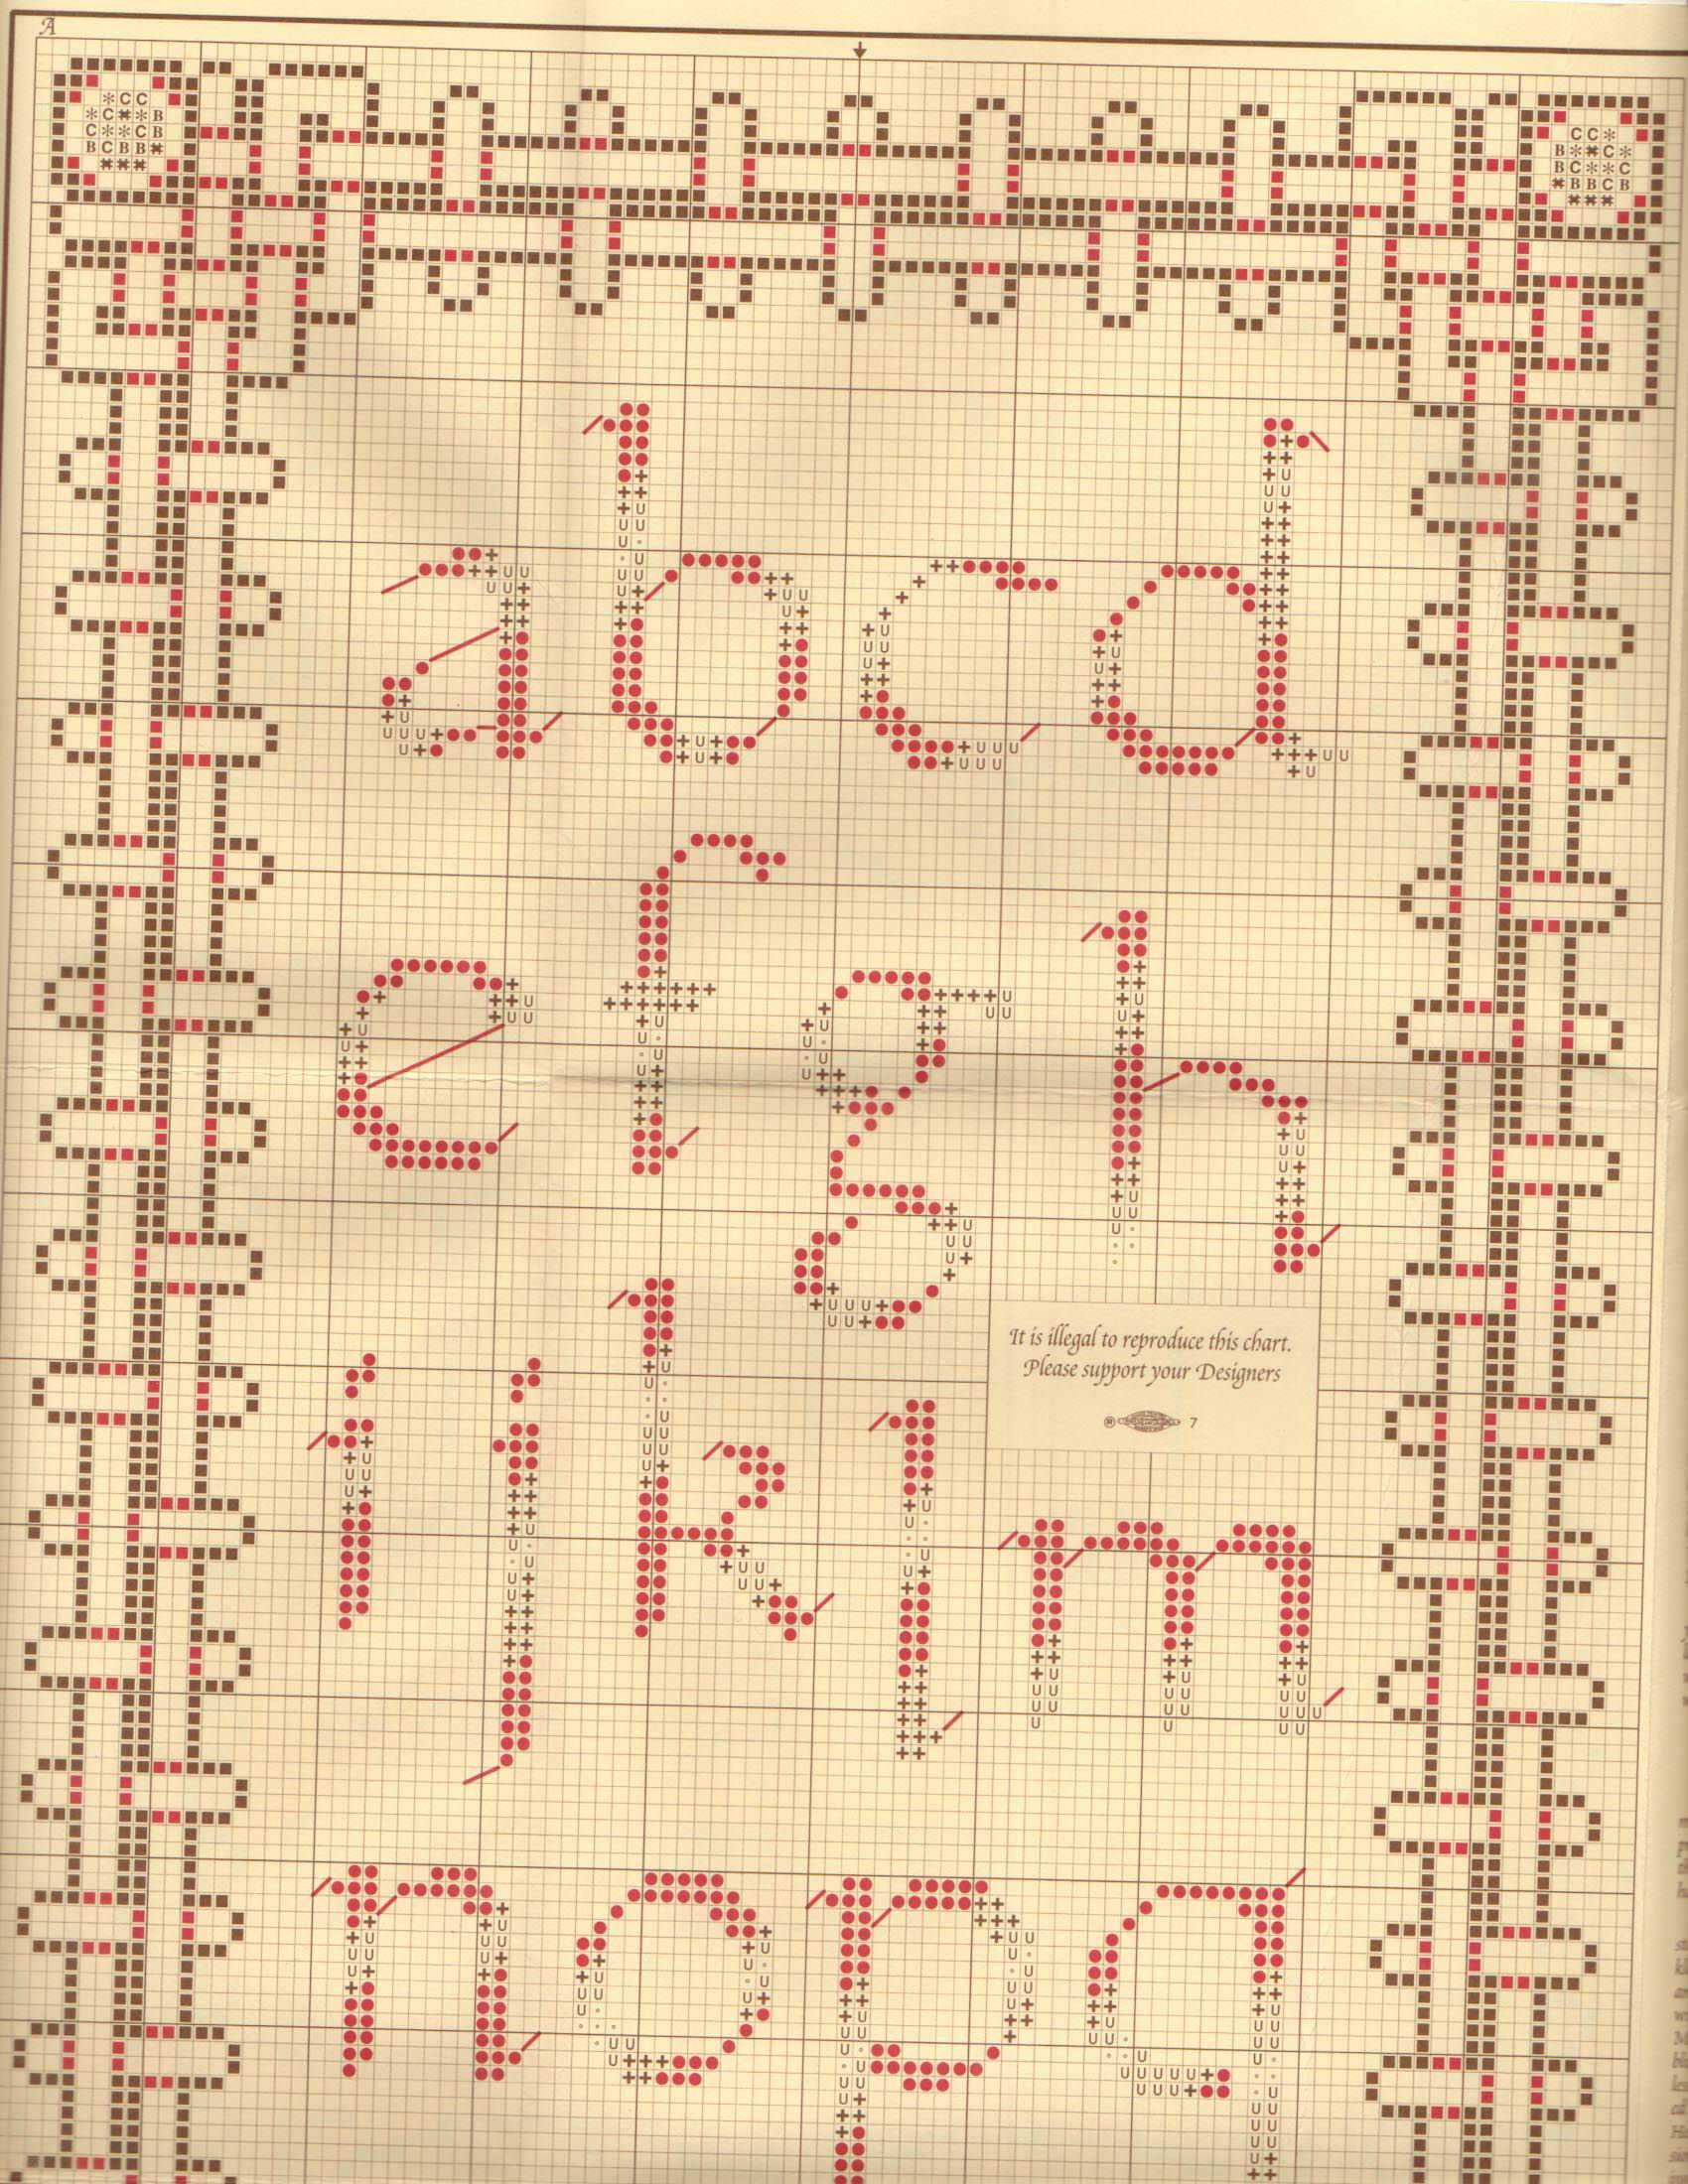 A
a b c d
e f g h
It is illegal to reproduce this chart.
Please support your Designers
® 7
i j k l m
n o p q